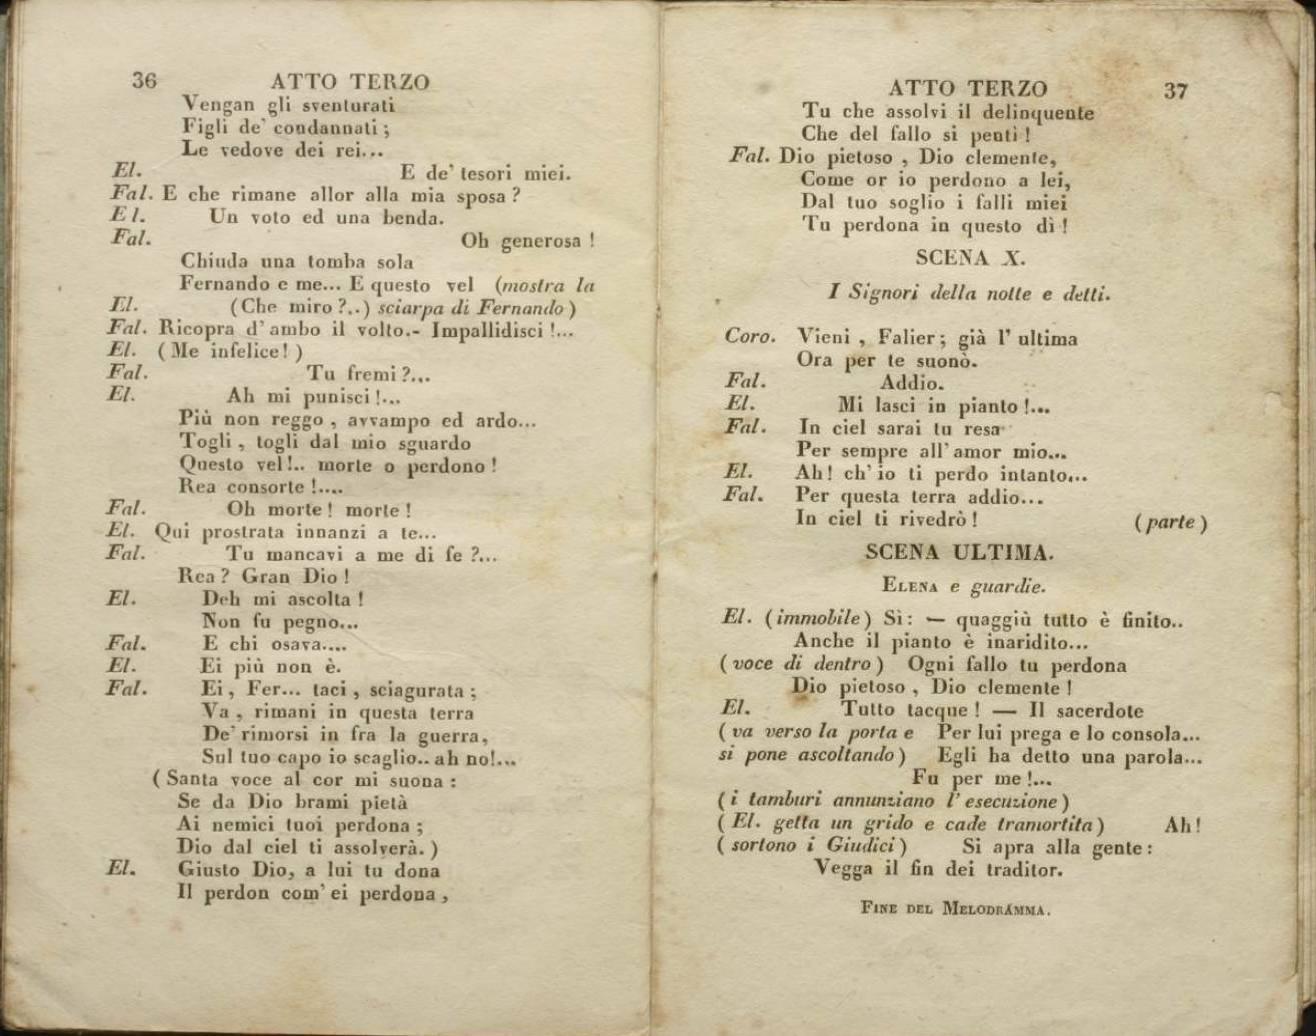 36 ATTO TERZO
Vengan gli sventurati
Figli de' condannati ;
Le vedove dei rei...
El. E de' tesori miei.
Fal. E che rimane allor alla mia sposa ?
El. Un voto ed una benda.
Fal. Oh generosa !
Chiuda una tomba sola
Fernando e me... E questo vel (mostra la
El. (Che miro ?..) sciarpa di Fernando )
Fal. Ricopra d' ambo il volto.- Impallidisci !...
El. ( Me infelice! )
Fal. Tu fremi ?...
El. Ah mi punisci !...
Più non reggo , avvampo ed ardo...
Togli , togli dal mio sguardo
Questo vel !.. morte o perdono !
Rea consorte !....
Fal. Oh morte ! morte !
El. Qui prostrata innanzi a te...
Fal. Tu mancavi a me di fe ?...
Rea ? Gran Dio !
El. Deh mi ascolta !
Non fu pegno...
Fal. E chi osava....
El. Ei più non è.
Fal. Ei , Fer... taci , sciagurata ;
Va , rimani in questa terra
De' rimorsi in fra la guerra,
Sul tuo capo io scaglio.. ah no!...
( Santa voce al cor mi suona :
Se da Dio brami pietà
Ai nemici tuoi perdona ;
Dio dal ciel ti assolverà. )
El. Giusto Dio, a lui tu dona
Il perdon com' ei perdona ,
ATTO TERZO 37
Tu che assolvi il delinquente
Che del fallo si pentì !
Fal. Dio pietoso , Dio clemente,
Come or io perdono a lei,
Dal tuo soglio i falli miei
Tu perdona in questo dì !
SCENA X.
I Signori della notte e detti.
Coro. Vieni , Falier ; già l' ultima
Ora per te suonò.
Fal. Addio.
El. Mi lasci in pianto !...
Fal. In ciel sarai tu resa
Per sempre all' amor mio...
El. Ah ! ch' io ti perdo intanto...
Fal. Per questa terra addio...
In ciel ti rivedrò ! ( parte )
SCENA ULTIMA.
ELENA e guardie.
El. ( immobile ) Sì : — quaggiù tutto è finito..
Anche il pianto è inaridito...
( voce di dentro ) Ogni fallo tu perdona
Dio pietoso , Dio clemente !
El. Tutto tacque ! — Il sacerdote
( va verso la porta e Per lui prega e lo consola...
si pone ascoltando ) Egli ha detto una parola...
Fu per me !...
( i tamburi annunziano l' esecuzione )
( El. getta un grido e cade tramortita ) Ah !
( sortono i Giudici ) Si apra alla gente :
Vegga il fin dei traditor.
FINE DEL MELODRAMMA.